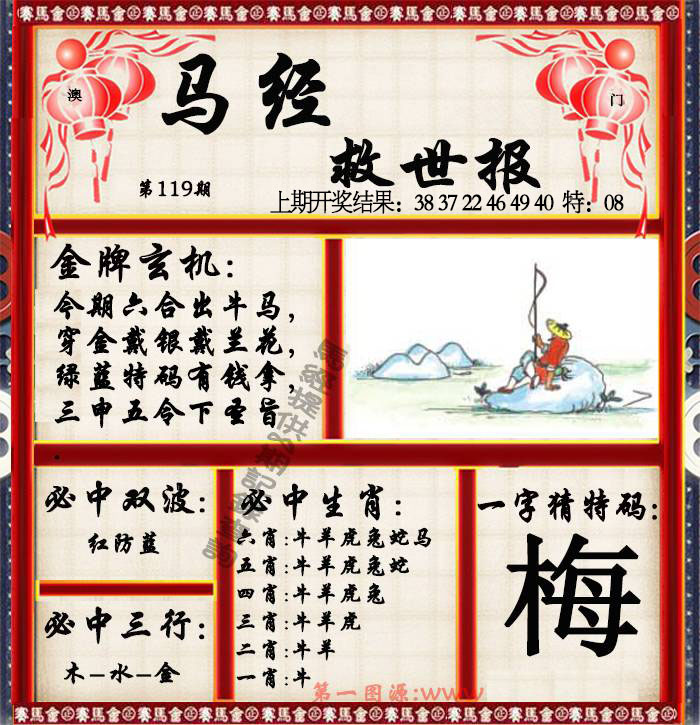 赛馬會金赛馬會金赛馬會金赛馬會金赛馬會金赛馬會金
澳
门
马经
救世报
第119期
上期开奖结果：38 37 22 46 49 40 特：08
金牌玄机：
今期六合出牛马，
穿金戴银戴兰花，
绿蓝特码有钱拿，
三申五令下圣旨
必中双波：
红防蓝
必中三行：
木–水–金
必中生肖：
六肖：牛羊虎兔蛇马
五肖：牛羊虎兔蛇
四肖：牛羊虎兔
三肖：牛羊虎
二肖：牛羊
一肖：牛
一字猜特码：
梅
第一图源：www